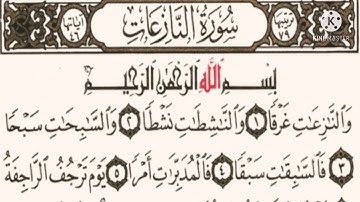 سُورَةُ النَّازِعَاتِ
ترتيبها ٧٩
آياتها ٤٦
KINEMASTER
بِسْمِ اللَّهِ الرَّحْمَٰنِ الرَّحِيمِ
وَالنَّازِعَاتِ غَرْقًا ١ وَالنَّاشِطَاتِ نَشْطًا ٢ وَالسَّابِحَاتِ سَبْحًا
٣ فَالسَّابِقَاتِ سَبْقًا ٤ فَالْمُدَبِّرَاتِ أَمْرًا ٥ يَوْمَ تَرْجُفُ الرَّاجِفَةُ